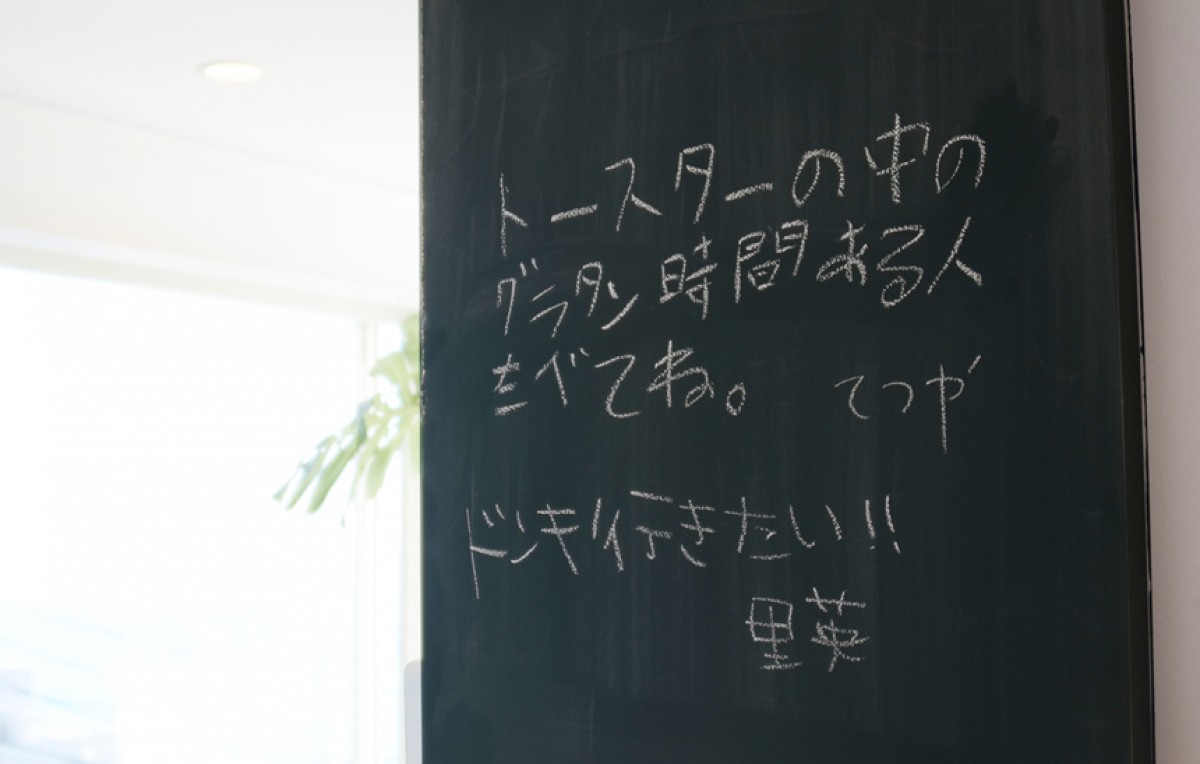 トースターの中の
グラタン時間ある人
たべてね。 てつや
ドンキ行きたい!!
里英